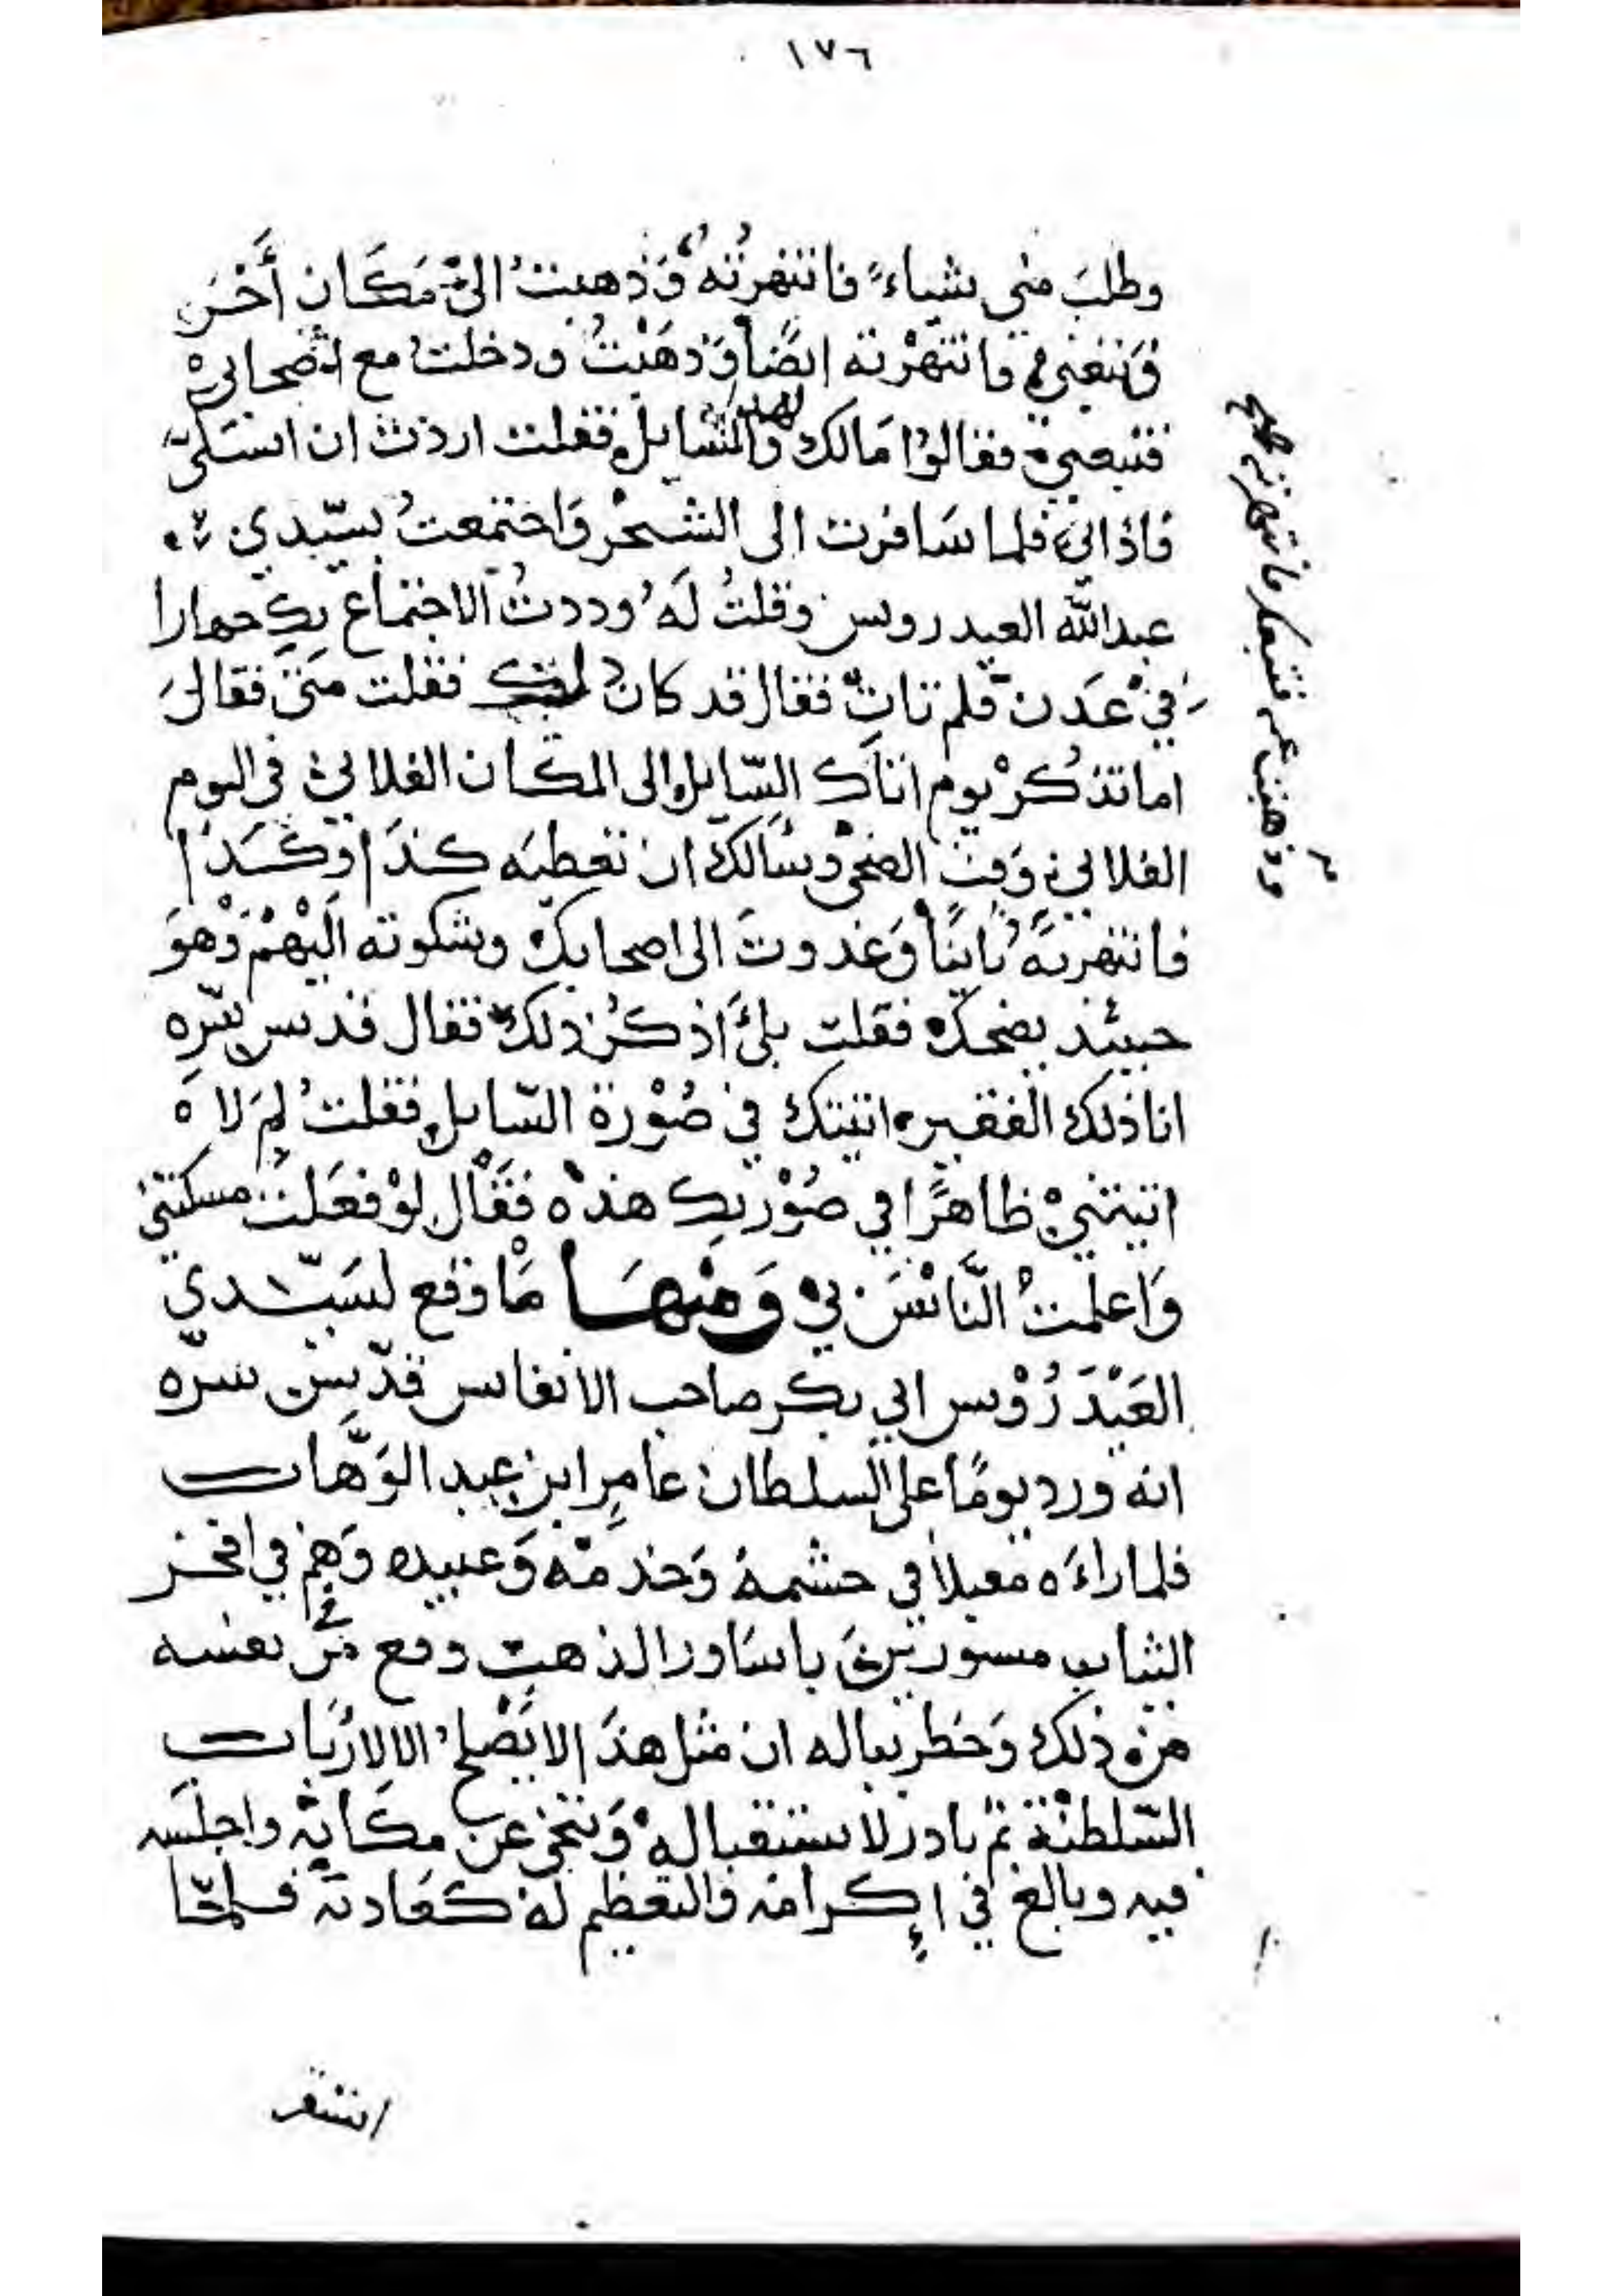 ١٧٦
وطلبَ مني شياءً فانتهرتُه وَذهبتُ الى مَكَان أَخَر
فَتبعني فانتهرْته ايضًا وَذهَبْتُ ودخلتُ مع اصحابي
فتبعني فقالوُا مَالك ولهذا السّايل فقلت اردت ان استكى
فاذاني فلما سَافرت الى الشحْر وَاجتمعتُ بسيّدي
عبدالله العيدروس وقلتُ لَهُ وددتُ الاجتماع بكِ جهارا
في عَدَن فلم تاتِ فقال قد كان فقلت مَتى فقالَ
اما تذكُرْ يوم اتاك السّايل الى المكان الفلاني في اليوم
الفلاني وَقت الضحى وسَالك ان تعطيَه كذَا وكَذَا
فانتهرتهُ ثانيًا وَغدوتَ الى اصحابك وشكوته الَيْهمْ وَهوَ
حينئذ يضحك فقلت بلىَ اذكرُ ذلك فقال قدس سّره
انا ذلك الفقير اتيتك في صُوْرة السّايل فقلتُ لِمَ لا
اتيتنيْ ظاهرًا في صُوْرتك هذه فقَال لوْ فعَلتُ مسكتني
وَاعلمتُ النَّاسَ بي وَمنهَا مَا وقع لسَيّدي
العَيْدَرُوْس ابي بكر صاحب الانفاس قدّس سره
انه ورد يومًا على السلطان عامِر ابن عبد الوَهَّاب
فلما راءَه مقبلا في حشمهُ وَخدمَه وَعبيده وَهم في افخر
الثياب مسورينَ باسَاور الذهب وقع في نفسه
من ذلك وَخطر بباله ان مثل هذَا لا يَصْلح الا لارُبَاب
السّلطنة ثم بادر لاستقباله وَتنحى عن مكَانِه واجلسَه
فيه وبالغ في إكرامه والتعظيم لهُ كعَادته فلمّا
وذهبت عنه فتبعني فانتهرته صح
استقر